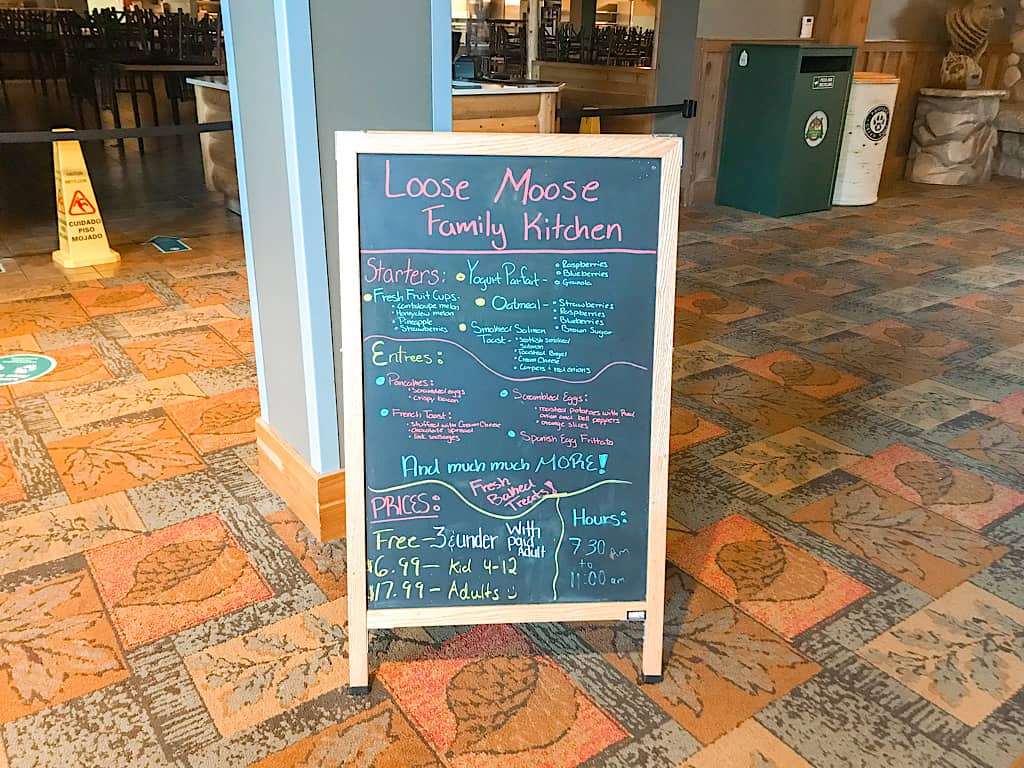 Loose Moose
Family Kitchen
Starters:
Fresh Fruit Cups-
Cantaloupe melon
Honeydew melon
Pineapple
Strawberries
Yogurt Parfait -
Raspberries
Blueberries
Granola
Oatmeal -
Strawberries
Raspberries
Blueberries
Brown Sugar
Smoked Salmon
Toast -
smoked
Salmon
Bagel
Cream Cheese
Capers + red onions
Entrees:
Pancakes:
Scrambled eggs
crispy bacon
French Toast:
stuffed with Cream Cheese
chocolate spread
link sausages
Scrambled Eggs:
roasted potatoes with Red
onion and bell peppers
orange slices
Spanish Egg Frittata
And much much MORE!
Fresh
Baked
Treats!
PRICES:
Free - 3 & under With
paid
Adult
$6.99 - Kid 4-12
$17.99 - Adults
Hours:
7:30 am
to
11:00 am
CUIDADO
PISO
MOJADO